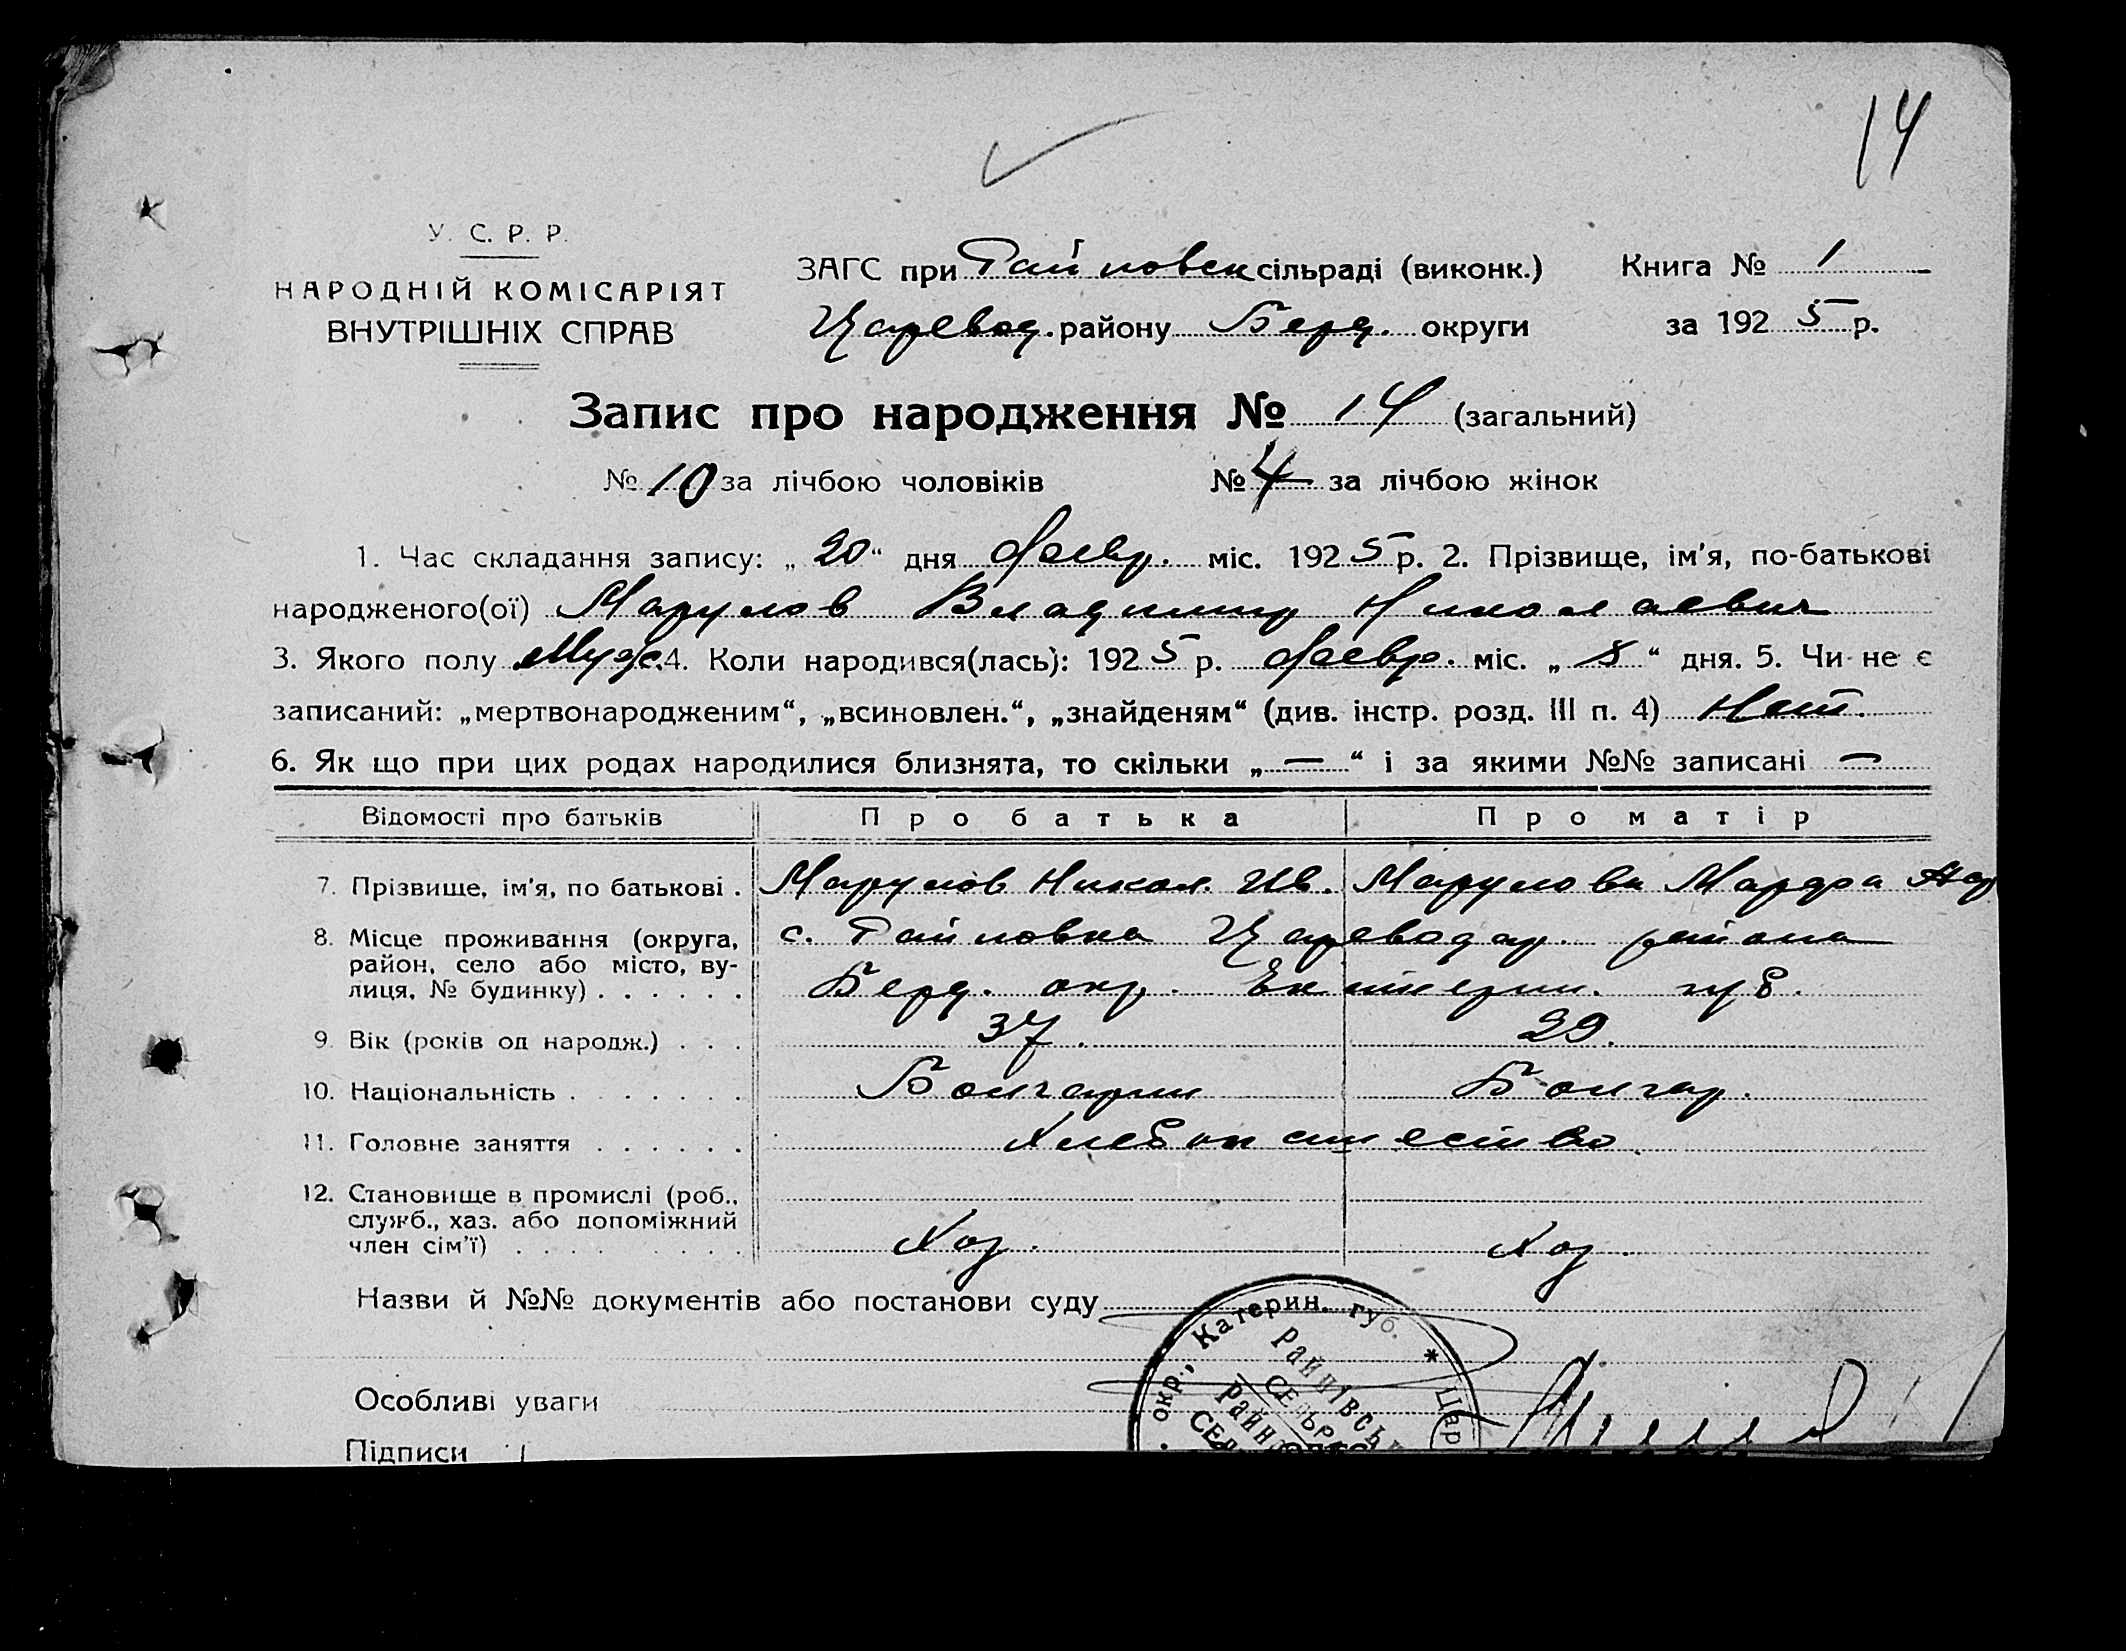 14
У. С. Р. Р.
НАРОДНІЙ КОМІСАРІЯТ
ВНУТРІШНІХ СПРАВ
ЗАГС при Райновск сільраді (виконк.)
Царевод. району Берд. округи
Книга № 1
за 1925 р.
Запис про народження № 14 (загальний)
№ 10 за лічбою чоловіків № 4 за лічбою жінок
1. Час складання запису: „20“ дня Февр. міс. 1925 р. 2. Прізвище, ім'я, по-батькові
народженого(ої) Марулов Владимир Николаевич
3. Якого полу Муж. 4. Коли народився(лась): 1925 р. Февр. міс. „8“ дня. 5. Чи не є
записаний: „мертвонародженим“, „всиновлен.“, „знайденям“ (див. інстр. розд. III п. 4) Нет.
6. Як що при цих родах народилися близнята, то скільки „—“ і за якими №№ записані —
Відомості про батьків Про батька Про матір
7. Прізвище, ім'я, по батькові . Марулов Никол. Ив. Марулова Марфа
8. Місце проживання (округа, с. Райновка Цареводар. района
район, село або місто, ву-
лиця, № будинку) . . . . . . Берд. окр. Екатерин. губ.
9. Вік (років од народж.) . . . 37. 29.
10. Національність . . . . . . . Болгарин Болгар.
11. Головне заняття . . . . . . Хлебопашество
12. Становище в промислі (роб.,
служб., хаз. або допоміжний
член сім'ї) . . . . . . . . Хоз. Хоз.
Назви й №№ документів або постанови суду
окр., Катерин. губ. * Цар
Райнівськ
СЕЛЬРА
Райн
СЕЛ
Особливі уваги
Підписи